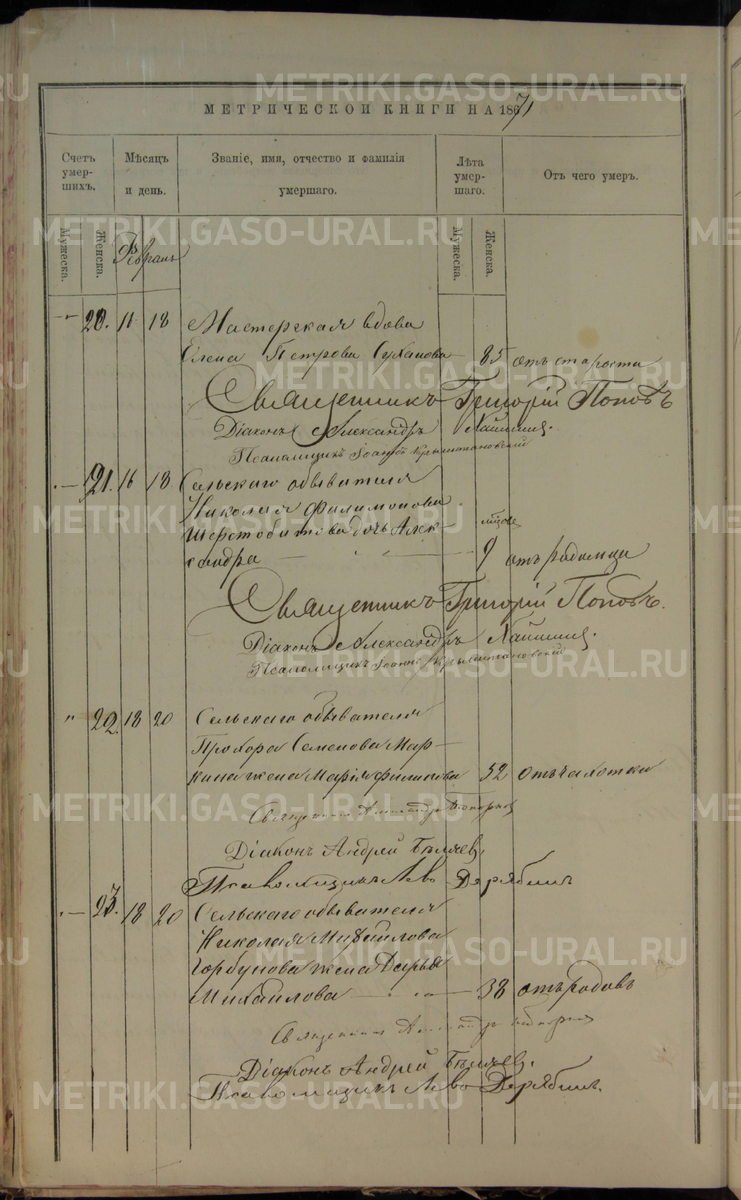 METRIKI.GASO-URAL.RU
МЕТРИЧЕСКОЙ КНИГИ НА 1871
Счетъ умер-шихъ.
Мѣсяцъ и день.
Званіе, имя, отчество и фамилія умершаго.
Лѣта умер-шаго.
Отъ чего умеръ.
Мужеска. Женска.
Февраль
Мужеска. Женска.
" 20. 11 18 Мастерская вдова
Елена Петрова Суханова 85 отъ старости
Священникъ Григорій Поповъ
Діаконъ Александръ
Псаломщикъ Іоаннъ
— 21. 16 18 Сельскаго обывателя
Николая Филимонова
Шерстобитова дочь Алек-
сандра — " — 9 отъ родимца
Священникъ Григорій Поповъ.
Діаконъ Александръ
Псаломщикъ Іоаннъ
" 22. 18 20 Сельскаго обывателя
Прохора Семенова Мар-
кина жена Марія Филипова 32 отъ чахотки
Священникъ Александръ
Діаконъ Андрей Бѣляев.
Псаломщикъ Левъ Дерябинъ
— 23. 18 20 Сельскаго обывателя
Николая Михайлова
Горбунова жена Дарья
Михайлова — " — 38 отъ родовъ
Священникъ Александръ
Діаконъ Андрей Бѣляев.
Псаломщикъ Левъ Дерябинъ.